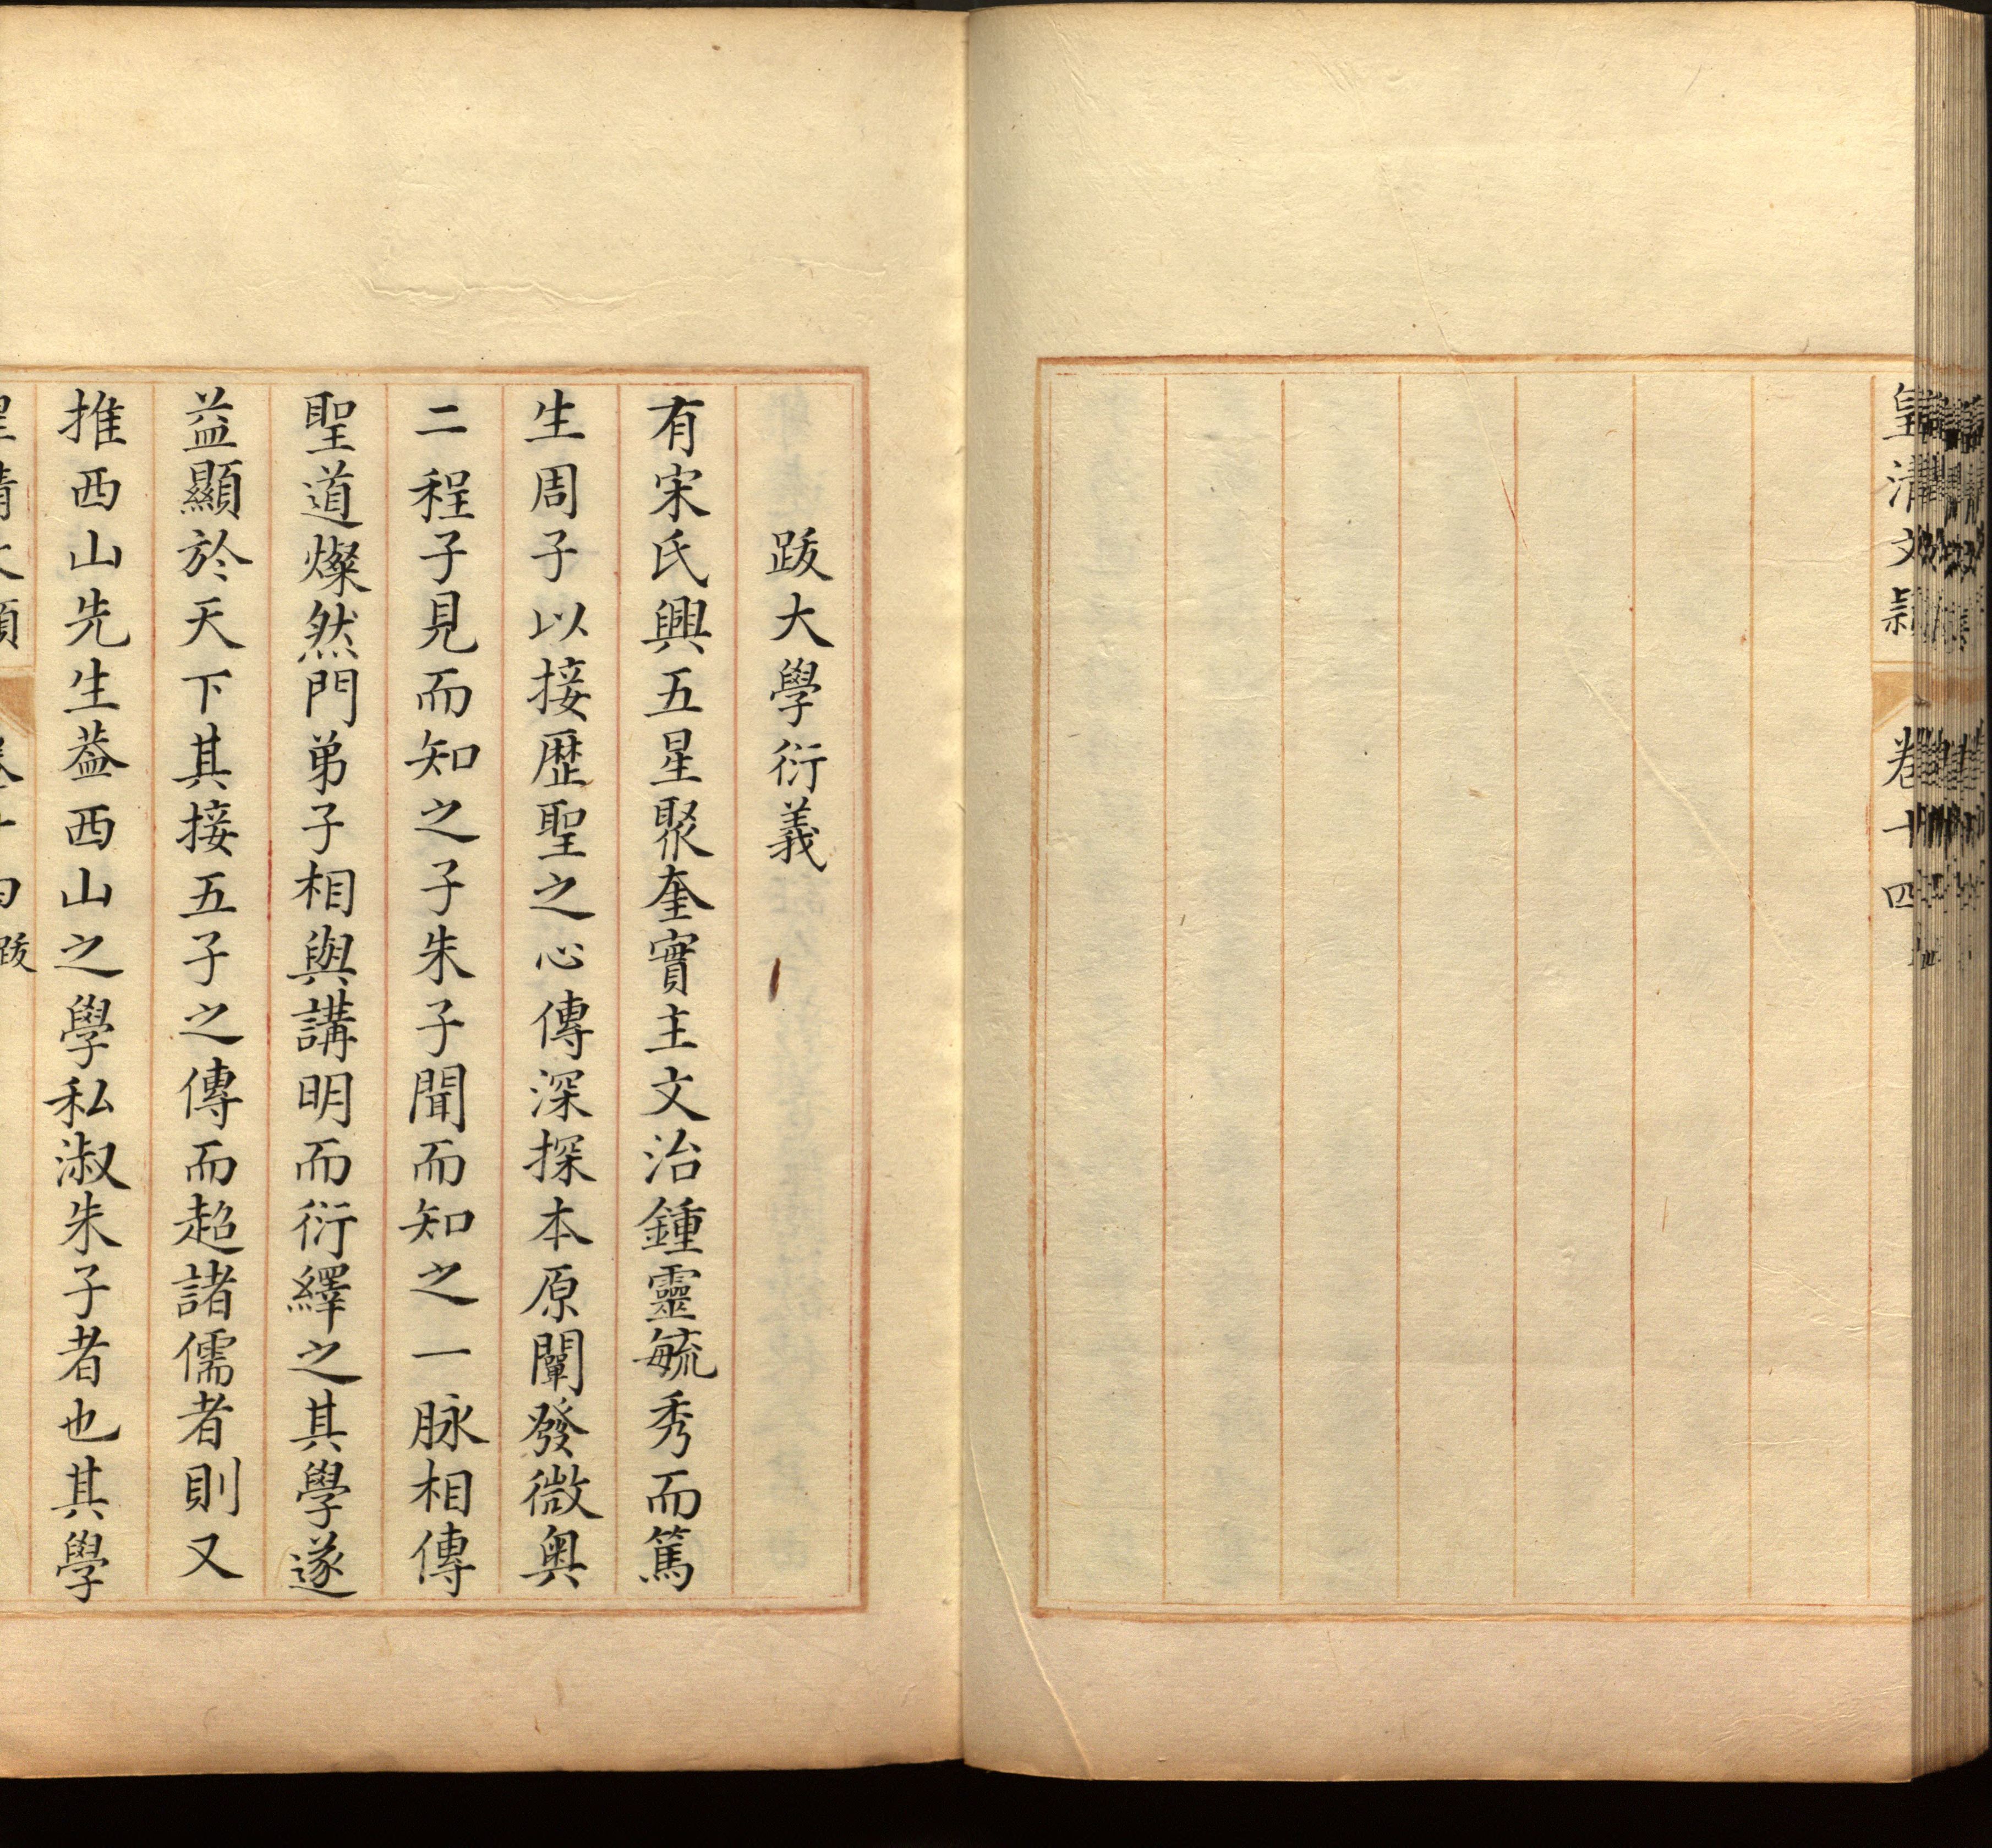 皇清文穎 卷十四
跋大學衍義
有宋氏興五星聚奎實主文治鍾靈毓秀而篤
生周子以接歴聖之心傳深探本原闡發微奥
二程子見而知之子朱子聞而知之一脉相傳
聖道燦然門弟子相與講明而衍繹之其學遂
益顯於天下其接五子之傳而超諸儒者則又
推西山先生葢西山之學私淑朱子者也其學
跋